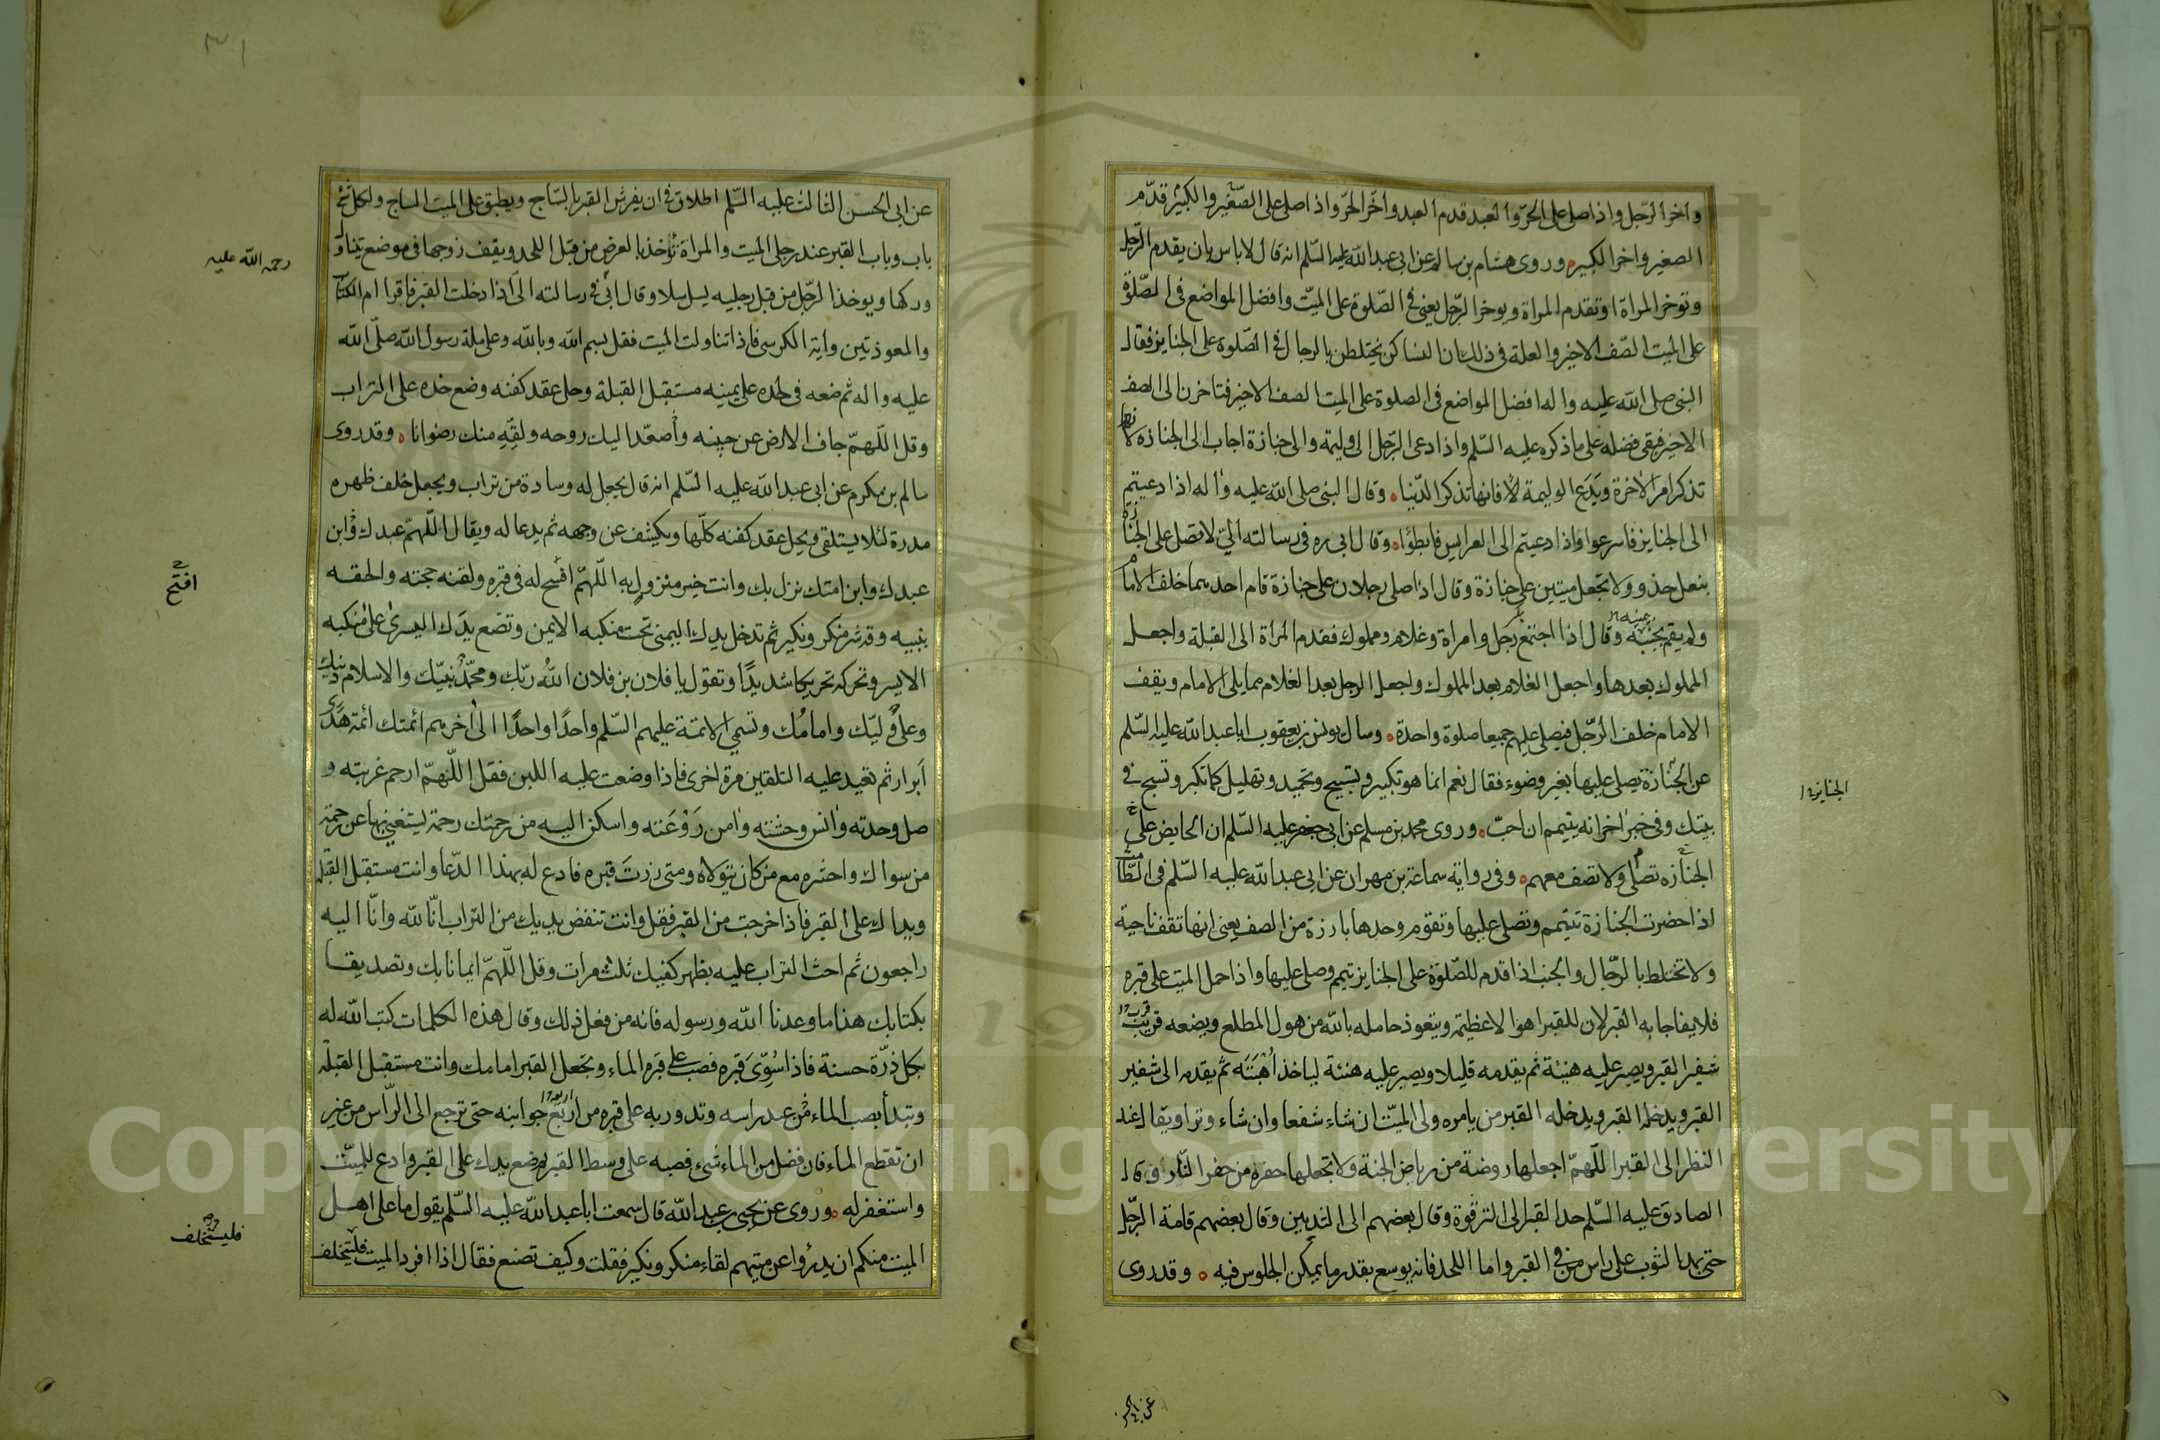 واخر الرجل واذا صلى على الحرّ والعبد قدم العبد واخّر الحرّ واذا صلى على الصّغير والكبير قدّم
الصغير واخر الكبير وروى هشام بن سالم عن ابى عبدالله عليه السّلم انه قال لا باس بان يقدم الرّجل
وتوخر المراة او تقدم المراة ويوخر الرّجل يعنى فى الصّلوة على الميّت وافضل المواضع فى الصّلوة
على الميت الصّف الاخير والعلة فى ذلك ان النساء كن يختلطن بالرجال فى الصّلوة على الجنايز فقال
النبى صلى الله عليه واله افضل المواضع فى الصلوة على الميت الصف الاخير فتاخرن الى الصف
الاخير فبقى فضله على ما ذكره عليه السّلم واذا دعى الرّجل الى وليمة والى جنازة اجاب الى الجنازة لانها
تذكر امر الاخرة ويَدَع الوليمة لانها تذكر الدّنيا وقال النبى صلى الله عليه واله اذا دعيتم
الى الجنايز فاسرعوا واذا دعيتم الى العرايس فابطؤا وقال ابى ره فى رسالته الىّ لا تصل على الجنازة
بنعل حذو ولا تجعل ميتين على جنازة وقال اذا صلى رجلان على جنازة قام احدهما خلف الامام
ولم يقم بجنبه وقال اذا اجتمع رجل وامراة وغلام ومملوك فقدم المراة الى القبلة واجعل
المملوك بعدها واجعل الغلام بعد المملوك واجعل الرجل بعد الغلام مما يلى الامام ويقف
الامام خلف الرّجل فيصلى عليهم جميعا صلوة واحدة وسال يونس بن يعقوب ابا عبدالله عليه السّلم
عن الجنازة يصلى عليها بغير وضوء فقال نعم انما هو تكبير وتسبيح وتحميد وتهليل كما تكبر وتسبح فى
بيتك وفى خبر اخر انه يتيمم ان احبّ وروى محمد بن مسلم عن ابى جعفر عليه السّلم ان الحايض على
الجنازه تصلى ولا تصف معهم وفى رواية سماعة بن مهران عن ابى عبدالله عليه السّلم فى الطامث
اذا حضرت الجنازة تتيمم وتصلى عليها وتقوم وحدها بارزة من الصف يعنى انها تقف ناحية
ولا تختلط بالرّجال والجنب اذا قدم للصّلوة على الجنايز تيمم وصلى عليها واذا حمل الميت على قبره
فلا يفاجا به القبر لان للقبر اهوالا عظيمة ويتعوذ حامله بالله من هول المطلع ويضعه قرب
شفير القبر ويصبر عليه هنيئة ثم يقدمه قليلا ويصبر عليه هنئة لياخذ اُهْبَتَه ثم يقدمه الى شفير
القبر ويدخله القبر ويدخله القبر من يامره ولى الميّت ان شاء شفعا وان شاء وترا ويقال عند
النظر الى القبر اللّهمّ اجعلها روضة من رياض الجنة ولا تجعلها حفره من حفر النّار وقال
الصادق عليه السّلم حد القبر الى الترقوة وقال بعضهم الى الثديين وقال بعضهم قامة الرّجل
حتى يمد الثوب على راس من فى القبر واما اللحد فانه يوسع بقدر ما يمكن الجلوس فيه وقد روى
الجنايز
عن ابى الحسن
عن ابى الحسن الثالث عليه السّلم اطلاق فى ان يفرش القبر بالسّاج ويطبق على الميت الساج ولكل شئ
باب وباب القبر عند رجلى الميت والمراة تؤخذ بالعرض من قبل اللحد ويقف زوجها فى موضع يتناول
وركها ويوخذ الرّجل من قبل رجليه يسل سلا وقال ابى فى رسالته الى اذا دخلت القبر فاقرا ام الكتاب
والمعوذتين وآية الكرسى فاذا تناولت الميت فقل بسم الله وبالله وعلى ملة رسول الله صلّى الله
عليه واله ثم ضعه فى لحده على يمينه مستقبل القبلة وحل عقد كفنه وضع خده على التراب
وقل اللّهمّ جاف الارض عن جنبيه وأصعد اليك روحه ولقّه منك رضوانا وقد روى
سالم بن مكرم عن ابى عبدالله عليه السّلم انه قال يجعل له وسادة من تراب ويجعل خلف ظهره
مدرة لئلا يستلقى ويحل عقد كفنه كلّها ويكشف عن وجهه ثم يدعا له ويقال اللّهمّ عبدك وابن
عبدك وابن امتك نزل بك وانت خير منزول به اللّهمّ افسح له فى قبره ولقنه حجته والحقه
بنبيه وقه شر منكر ونكير ثم تدخل يدك اليمنى تحت منكبه الايمن وتضع يدَك اليسرى على منكبه
الايسر وتحركه تحريكا شديدًا وتقول يا فلان بن فلان اللهُ ربّك ومحمّدٌ نبيّك والاسلام دينك
وعلى وليّك وامامُك وتسمى الائمة عليهم السّلم واحدًا واحدًا الى آخرهم ائمتك ائمة هدى
أبرار ثم تعيد عليه التلقين مرة اخرى فاذا وضعت عليه اللبن فقل اللّهمّ ارحم غربته و
صل وحدته وآنس وحشته وآمن رَوْعَته واسكن اليه من رحمتك رحمة يستغنى بها عن رحمة
من سواك واحشره مع من كان يتولاه ومتى زرتَ قبره فادع له بهذا الدّعا وانت مستقبل القبلة
ويداك على القبر فاذا خرجت من القبر فقل وانت تنفض يديك من التراب انّا لله وانّا اليه
راجعون ثم احث التراب عليه بظهر كفيك ثلث مرات وقل اللّهمّ ايمانا بك وتصديقا
بكتابك هذا ما وعدنا الله ورسوله فانه من فعل ذلك وقال هذه الكلمات كتب الله له
بكل ذرّة حسنة فاذا سُوّىَ قبره فصب على قبره الماء وتجعل القبر امامك وانت مستقبل القبلة
وتبدأ بصب الماء من عند راسه وتدور به على قبره من اربع جوانبه حتى ترجع الى الرّاس من غير
ان تقطع الماء فان فضل من الماء شىء فصبه على وسط القبر ثم ضع يدك على القبر وادع للميّت
واستغفر له وروى عن يحيى بن عبدالله قال سمعت ابا عبدالله عليه السّلم يقول ما على اهل
الميت منكم ان يدرؤا عن ميتهم لقاء منكر ونكير فقلت وكيف تصنع فقال اذا افرد الميت فليتخلف
رحمة الله عليه
افتح
فليستخلف
Copyright © King Saud University